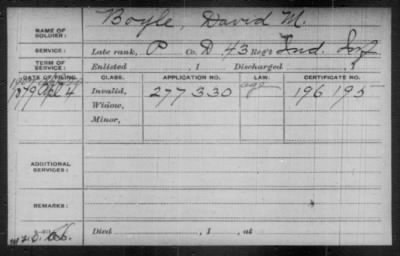 NAME OF SOLDIER: Boyle, David M.
SERVICE: Late rank, P Co. D, 43 Reg't Ind. Inf
TERM OF SERVICE: Enlisted , 1 Discharged , 1
DATE OF FILING. CLASS. APPLICATION NO. LAW. CERTIFICATE NO.
1879 Apl 4 Invalid, 277330 age 196195
Widow,
Minor,
ADDITIONAL SERVICES:
REMARKS:
Died , 1 , at